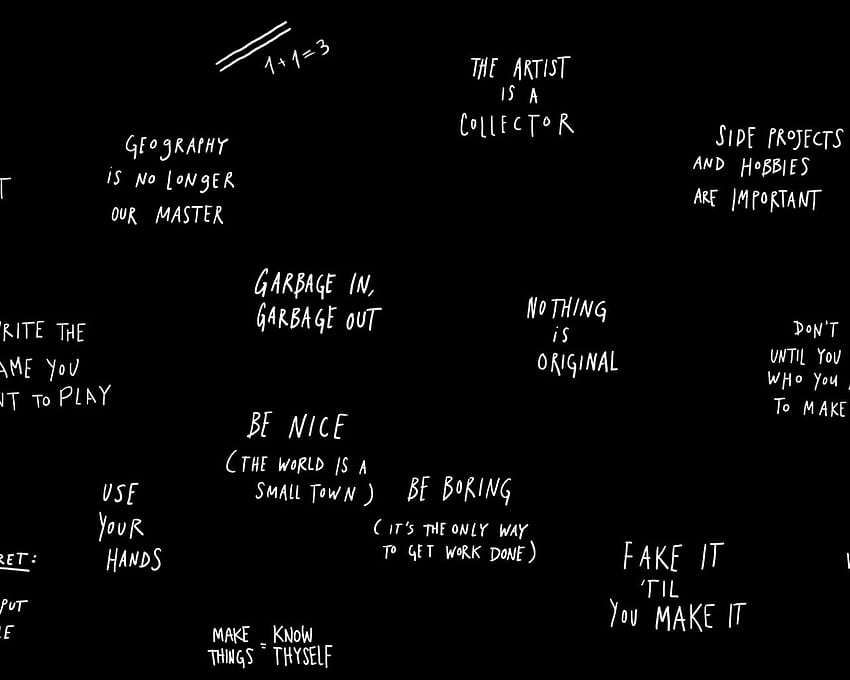 1+1=3
THE ARTIST
IS A
COLLECTOR
GEOGRAPHY
IS NO LONGER
OUR MASTER
SIDE PROJECTS
AND HOBBIES
ARE IMPORTANT
T
GARBAGE IN,
GARBAGE OUT
NOTHING
IS
ORIGINAL
RITE THE
AME YOU
NT TO PLAY
DON'T
UNTIL YOU
WHO YOU
TO MAKE
BE NICE
(THE WORLD IS A
SMALL TOWN)
BE BORING
(IT'S THE ONLY WAY
TO GET WORK DONE)
USE
YOUR
HANDS
RET:
PUT
LE
FAKE IT
'TIL
YOU MAKE IT
MAKE THINGS = KNOW THYSELF